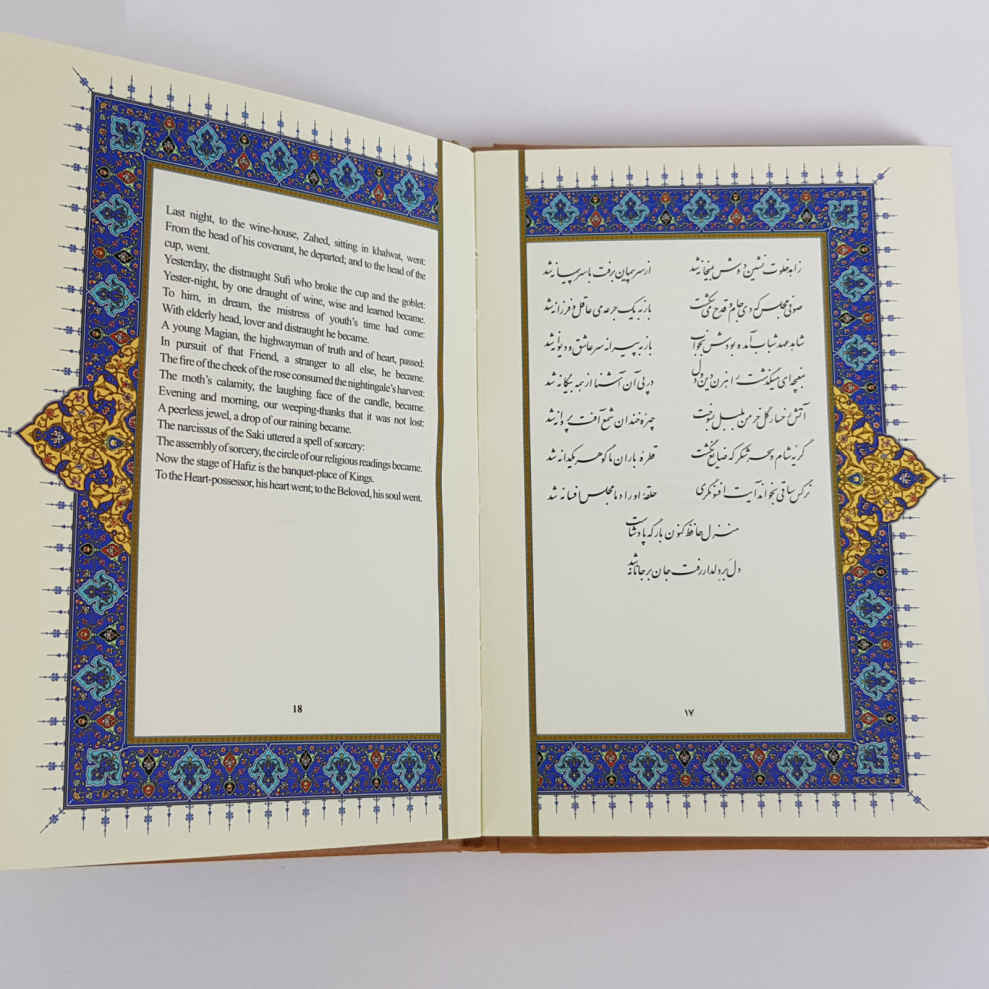 Last night, to the wine-house, Zahed, sitting in khalwat, went:
From the head of his covenant, he departed; and to the head of the
cup, went.
Yesterday, the distraught Sufi who broke the cup and the goblet:
Yester-night, by one draught of wine, wise and learned became.
To him, in dream, the mistress of youth's time had come:
With elderly head, lover and distraught he became.
A young Magian, the highwayman of truth and of heart, passed:
In pursuit of that Friend, a stranger to all else, he became.
The fire of the cheek of the rose consumed the nightingale's harvest:
The moth's calamity, the laughing face of the candle, became.
Evening and morning, our weeping-thanks that it was not lost:
A peerless jewel, a drop of our raining became.
The narcissus of the Saki uttered a spell of sorcery:
The assembly of sorcery, the circle of our religious readings became.
Now the stage of Hafiz is the banquet-place of Kings.
To the Heart-possessor, his heart went; to the Beloved, his soul went.
18
زاهد خلوت نشین دوش بمیخانه شد از سر پیمان برفت با سر پیمانه شد
صوفی مجلس که دی جام و قدح می‌شکست باز به یک جرعه می عاقل و فرزانه شد
شاهد عهد شباب آمده بودش بخواب باز به پیرانه سر عاشق و دیوانه شد
مغبچه‌ای میگذشت راهزن دین و دل در پی آن آشنا از همه بیگانه شد
آتش رخسار گل خرمن بلبل بسوخت چهره خندان شمع آفت پروانه شد
گریه شام و سحر شکر که ضایع نگشت قطره باران ما گوهر یکدانه شد
نرگس ساقی بخواند آیت افسونگری حلقه اوراد ما مجلس افسانه شد
منزل حافظ کنون بارگه پادشاست
دل بر دلدار رفت جان بر جانانه شد
۱۷